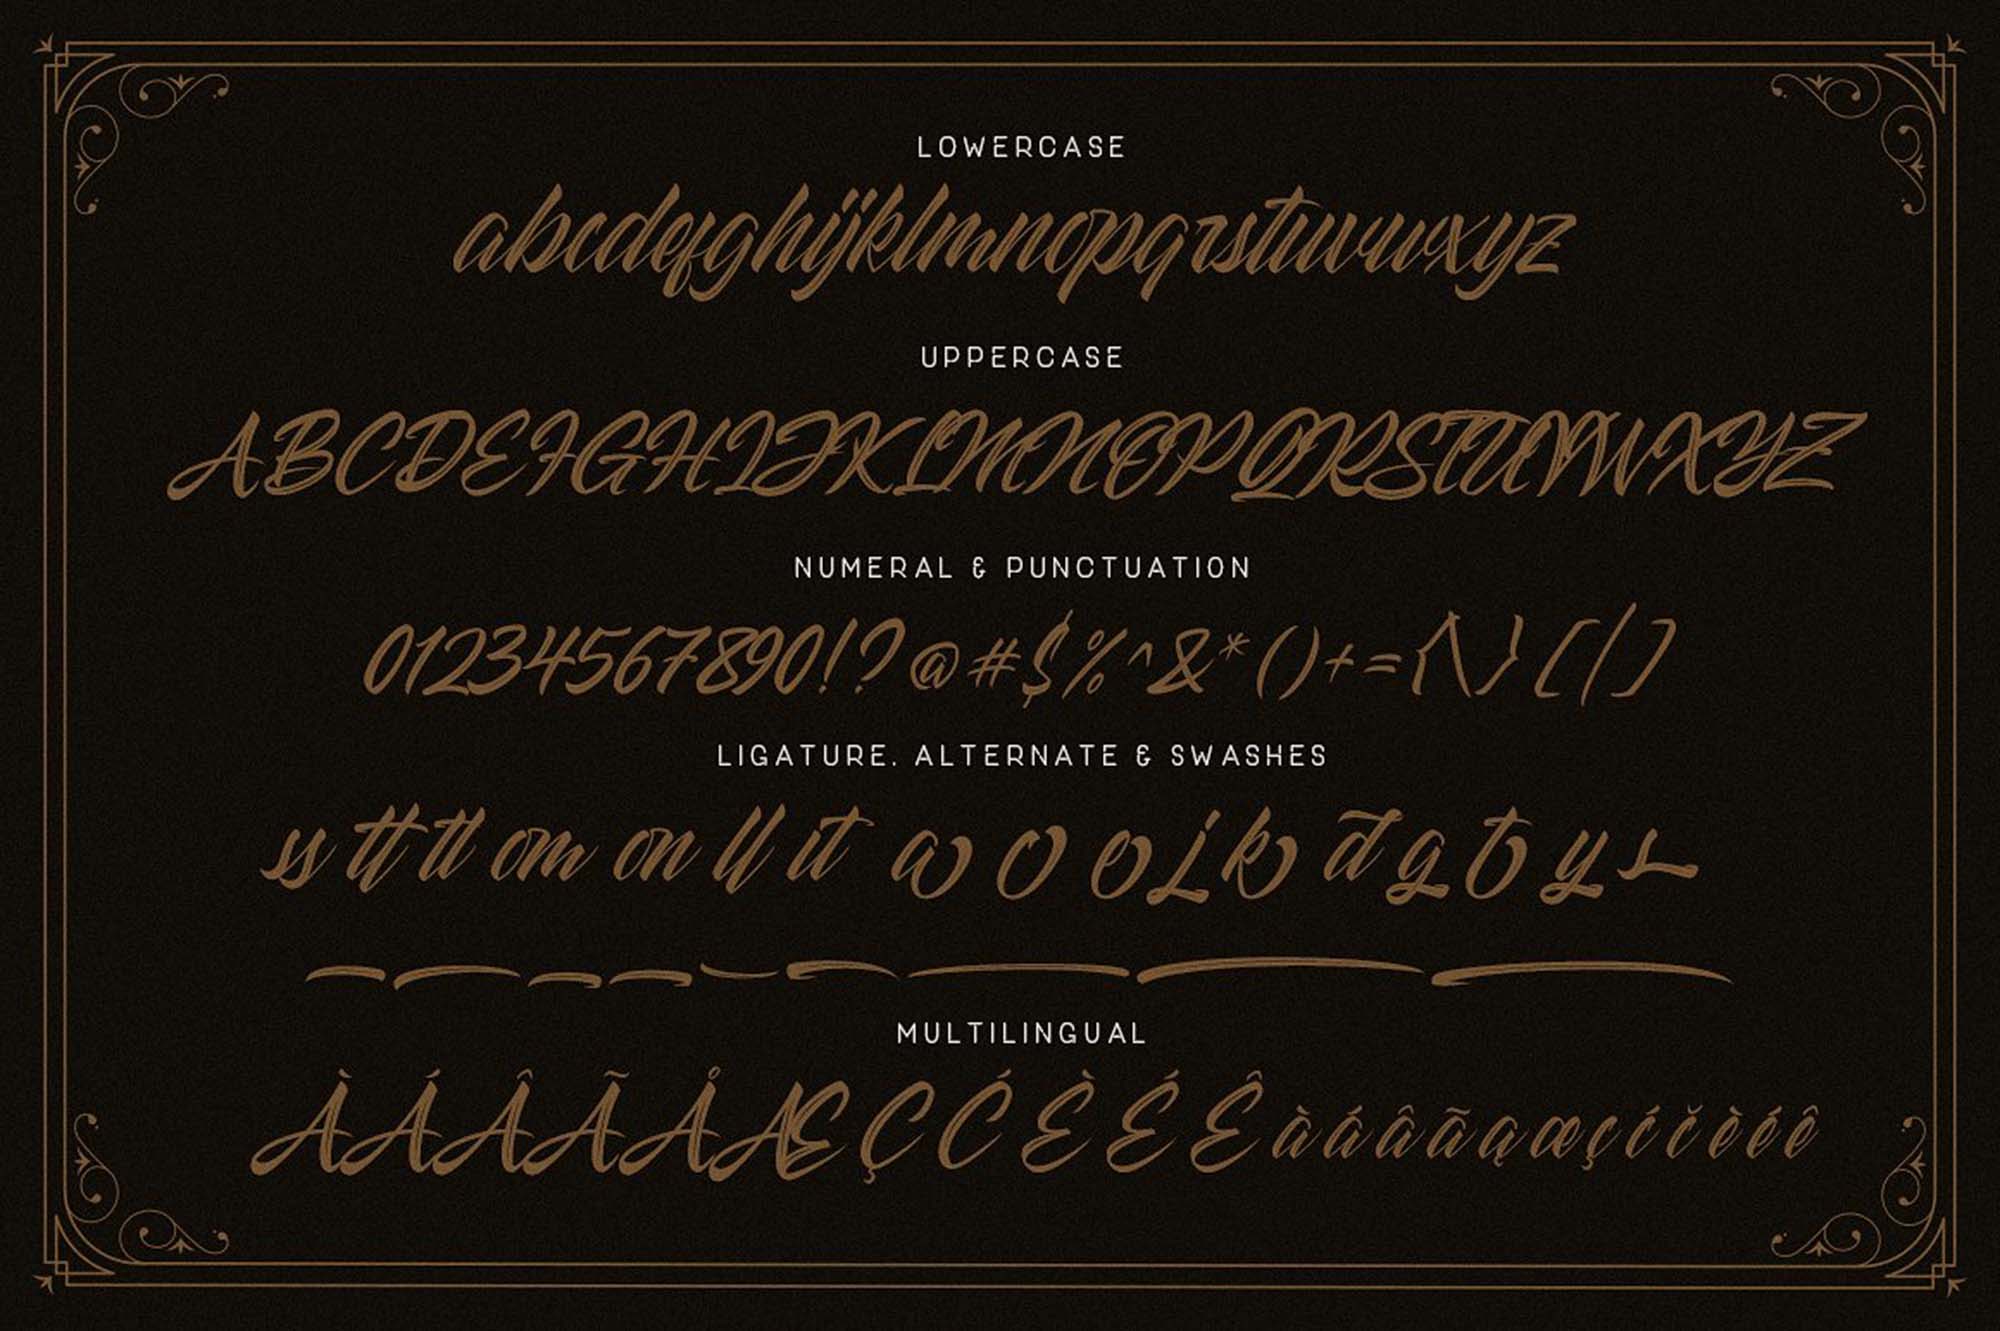 LOWERCASE
abcdefghijklmnopqrstuvwxyz
UPPERCASE
ABCDEFGHIJKLMNOPQRSTUVWXYZ
NUMERAL & PUNCTUATION
01234567890!?@#$%^&*()+={\}[/]
LIGATURE. ALTERNATE & SWASHES
ss tt tl om on ll it a o e j k d g t y s
MULTILINGUAL
ÀÁÂÃÅÆÇĆÈÉÊàáâãąæçíĭèéê